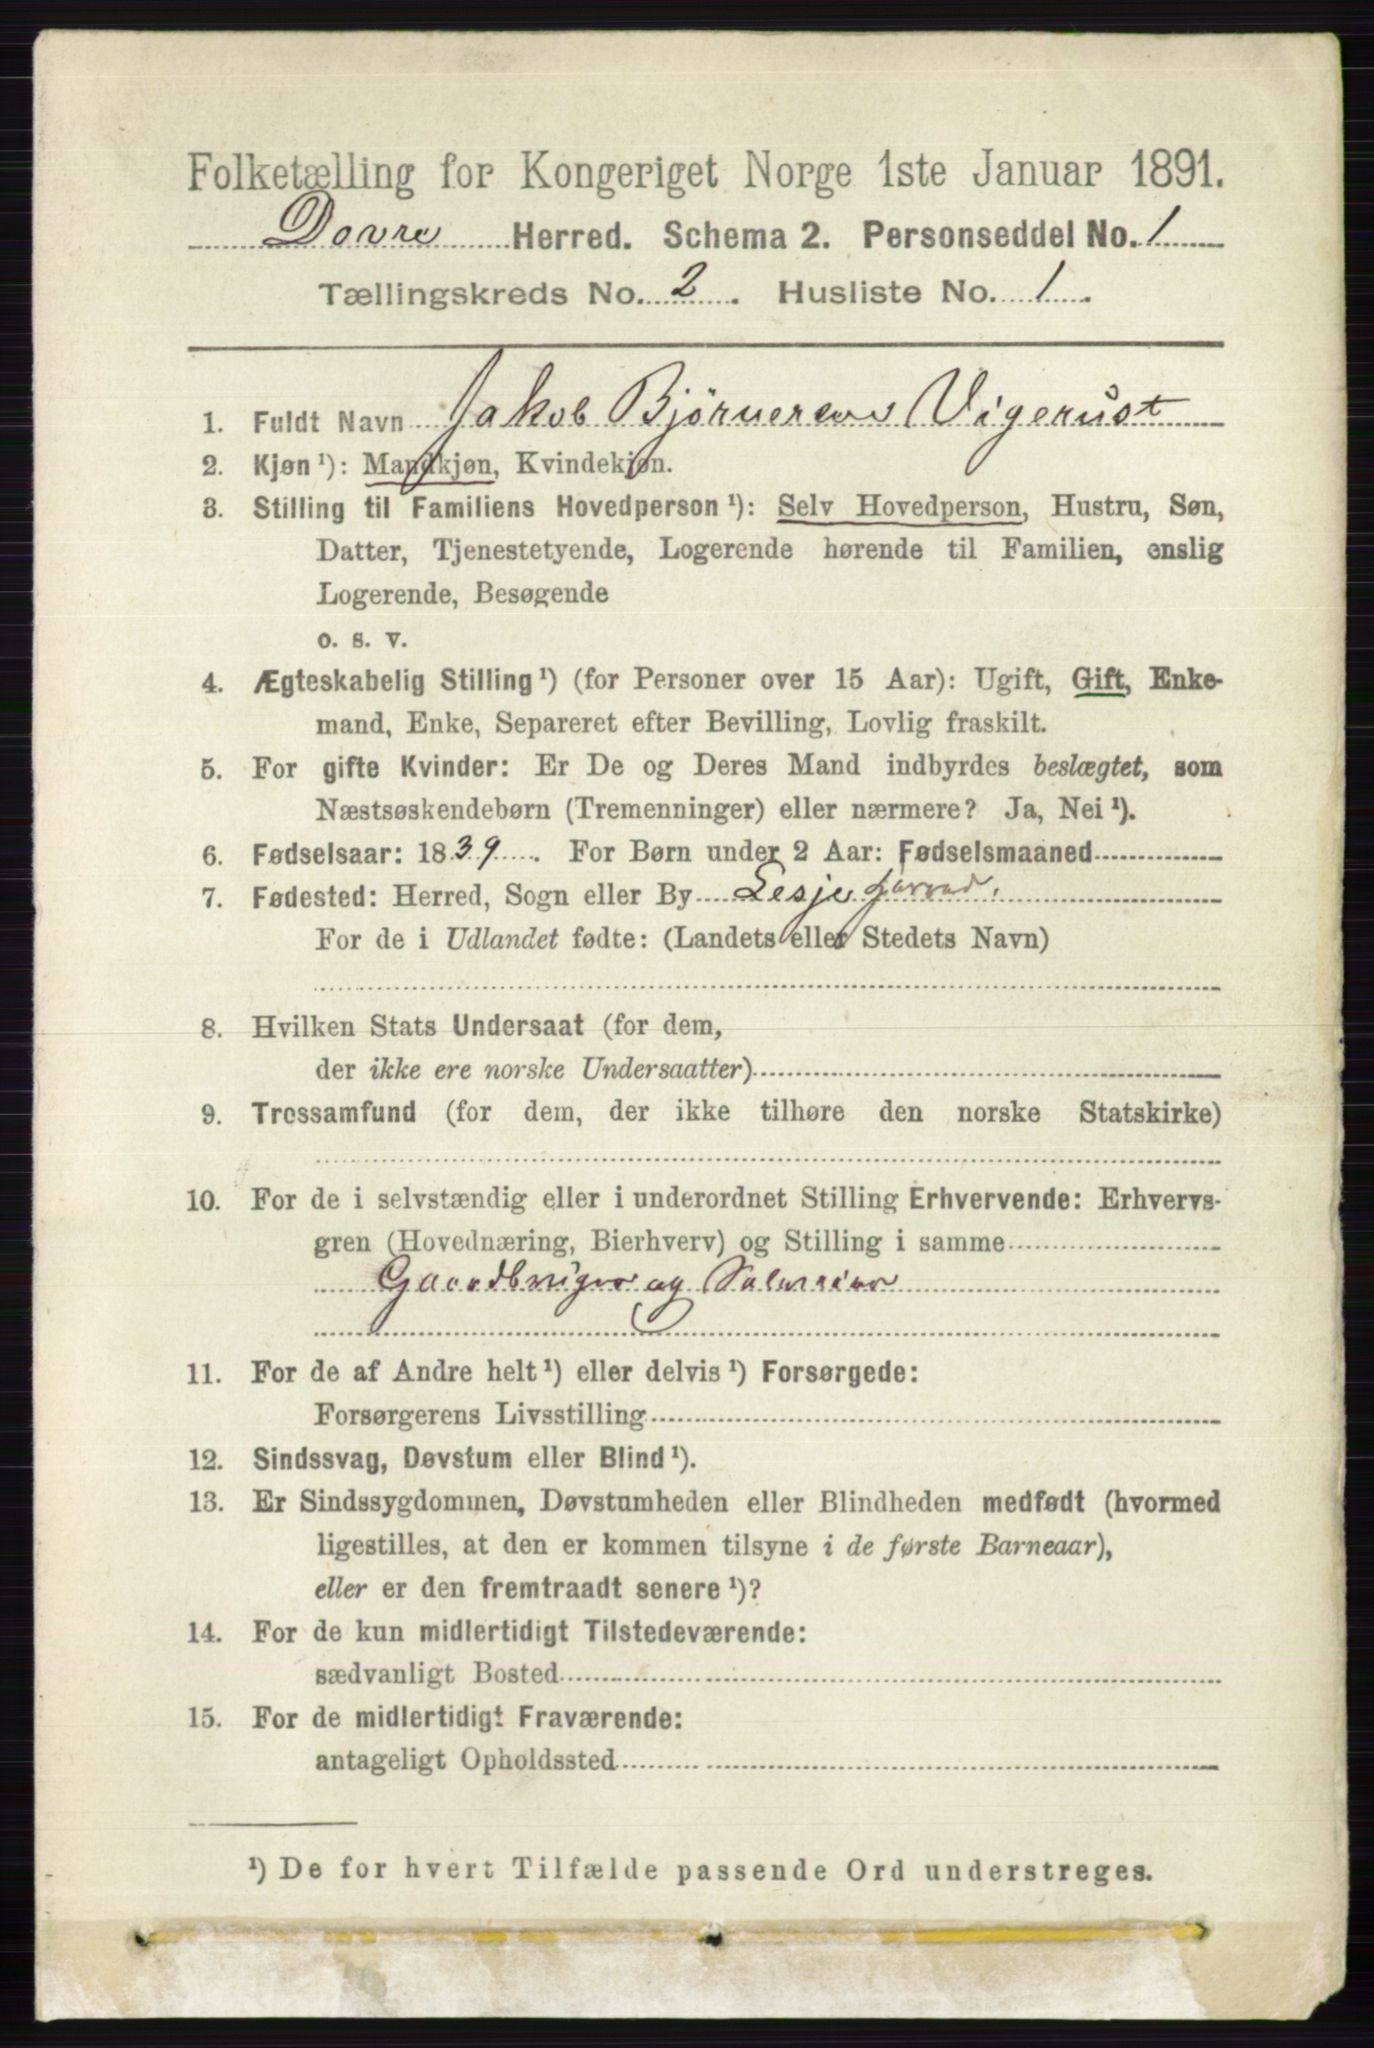 Folketælling for Kongeriget Norge 1ste Januar 1891.
Dovre Herred. Schema 2. Personseddel No. 1
Tællingskreds No. 2. Husliste No. 1.
1. Fuldt Navn Jakob Vigerust
2. Kjøn ¹): Mandkjøn, Kvindekjøn.
3. Stilling til Familiens Hovedperson ¹): Selv Hovedperson, Hustru, Søn,
Datter, Tjenestetyende, Logerende hørende til Familien, enslig
Logerende, Besøgende
o. s. v.
4. Ægteskabelig Stilling ¹) (for Personer over 15 Aar): Ugift, Gift, Enke-
mand, Enke, Separeret efter Bevilling, Lovlig fraskilt.
5. For gifte Kvinder: Er De og Deres Mand indbyrdes beslægtet, som
Næstsøskendebørn (Tremenninger) eller nærmere? Ja, Nei ¹).
6. Fødselsaar: 1839. For Børn under 2 Aar: Fødselsmaaned
7. Fødested: Herred, Sogn eller By Lesje
For de i Udlandet fødte: (Landets eller Stedets Navn)
8. Hvilken Stats Undersaat (for dem,
der ikke ere norske Undersaatter)
9. Trossamfund (for dem, der ikke tilhøre den norske Statskirke)
10. For de i selvstændig eller i underordnet Stilling Erhvervende: Erhvervs-
gren (Hovednæring, Bierhverv) og Stilling i samme
Gaardbruger og
11. For de af Andre helt ¹) eller delvis ¹) Forsørgede:
Forsørgerens Livsstilling
12. Sindssvag, Døvstum eller Blind ¹).
13. Er Sindssygdommen, Døvstumheden eller Blindheden medfødt (hvormed
ligestilles, at den er kommen tilsyne i de første Barneaar),
eller er den fremtraadt senere ¹)?
14. For de kun midlertidigt Tilstedeværende:
sædvanligt Bosted
15. For de midlertidigt Fraværende:
antageligt Opholdssted
¹) De for hvert Tilfælde passende Ord understreges.